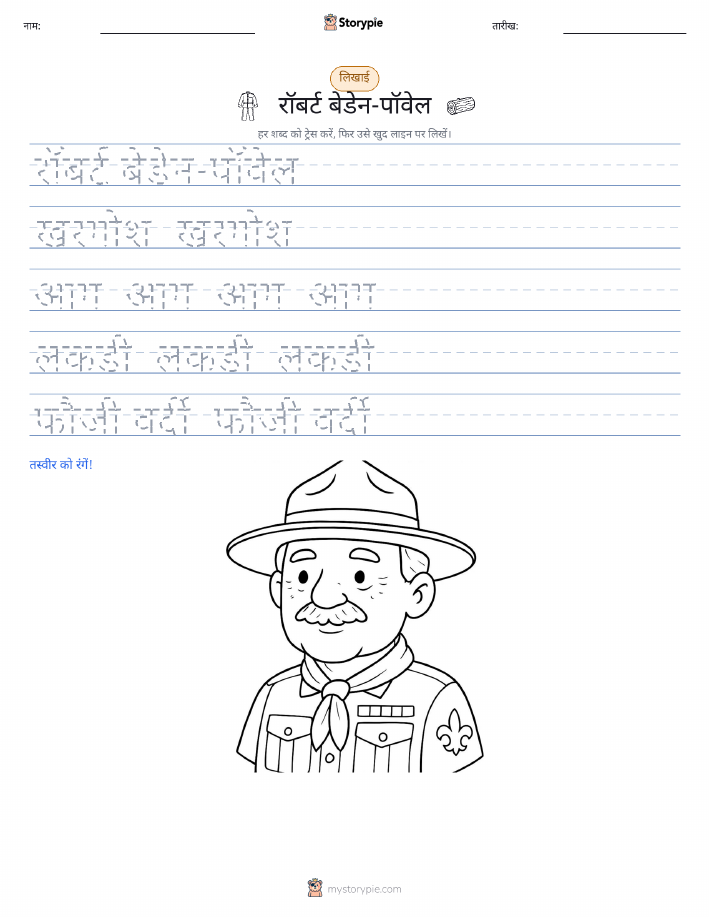 नाम:
Storypie
तारीख:
लिखाई
रॉबर्ट बेडेन-पॉवेल
हर शब्द को ट्रेस करें, फिर उसे खुद लाइन पर लिखें।
रॉबर्ट बेडेन-पॉवेल
खरगोश खरगोश
आग आग आग आग
लकड़ी लकड़ी लकड़ी
फौजी वर्दी फौजी वर्दी
तस्वीर को रंगें!
mystorypie.com